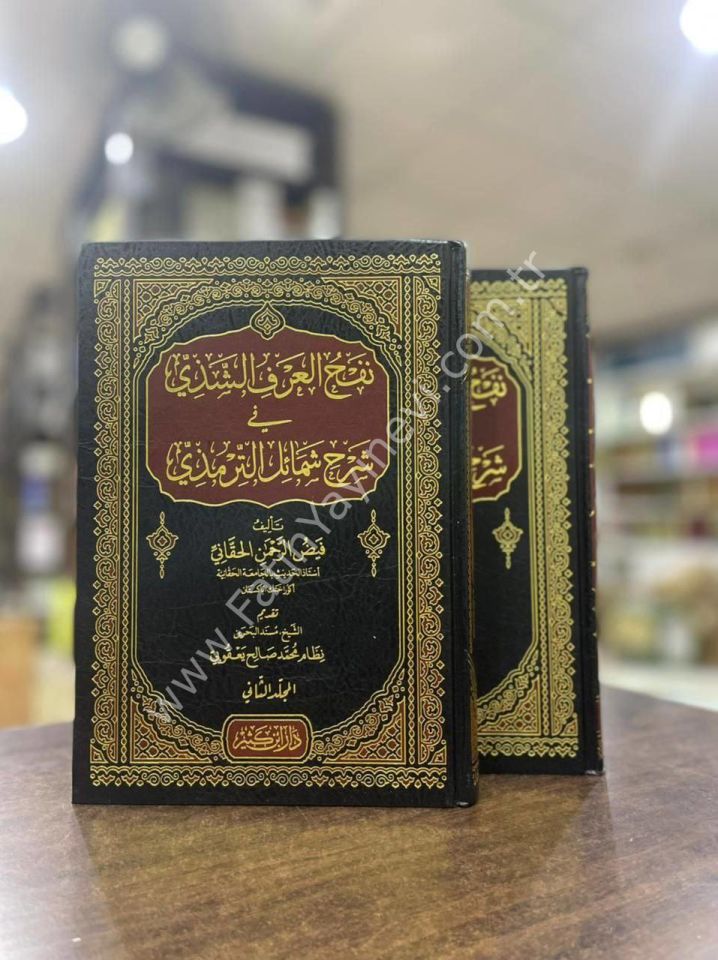 نفح العرف الشذي
في
شرح شمائل الترمذي
تأليف
فيض الرحمن الحقاني
أستاذ الحديث بالجامعة الحقانية
أكوره ختك باكستان
تقديم
الشيخ مسند البحرين
نظام محمد صالح يعقوبي
المجلد الثاني
دار ابن كثير
نفح
شرح
www.FatihYayinevi.com.tr